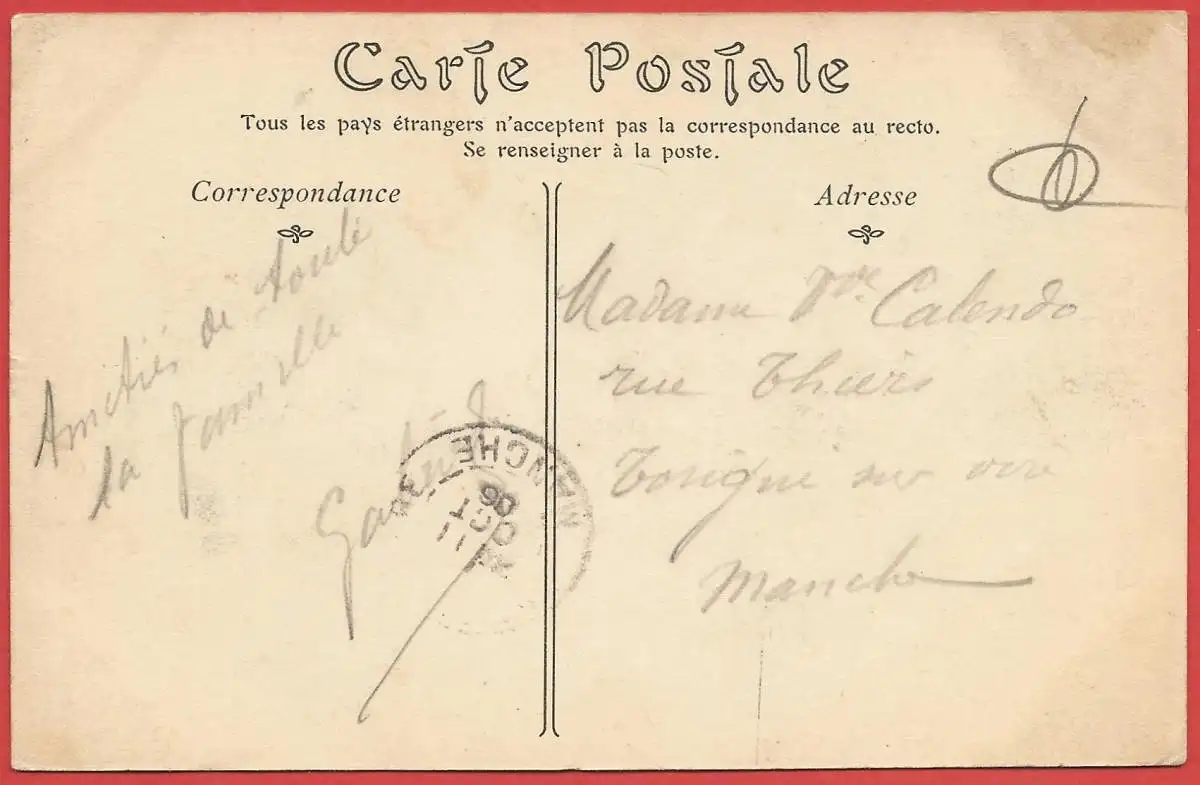 Carte Postale
Tous les pays étrangers n'acceptent pas la correspondance au recto.
Se renseigner à la poste.
Correspondance
Amitiés de toute
la famille
Adresse
Madame Vve Calendo
rue Thiers
Torigni sur vire
Manche
MANCHE
11
OCT
06